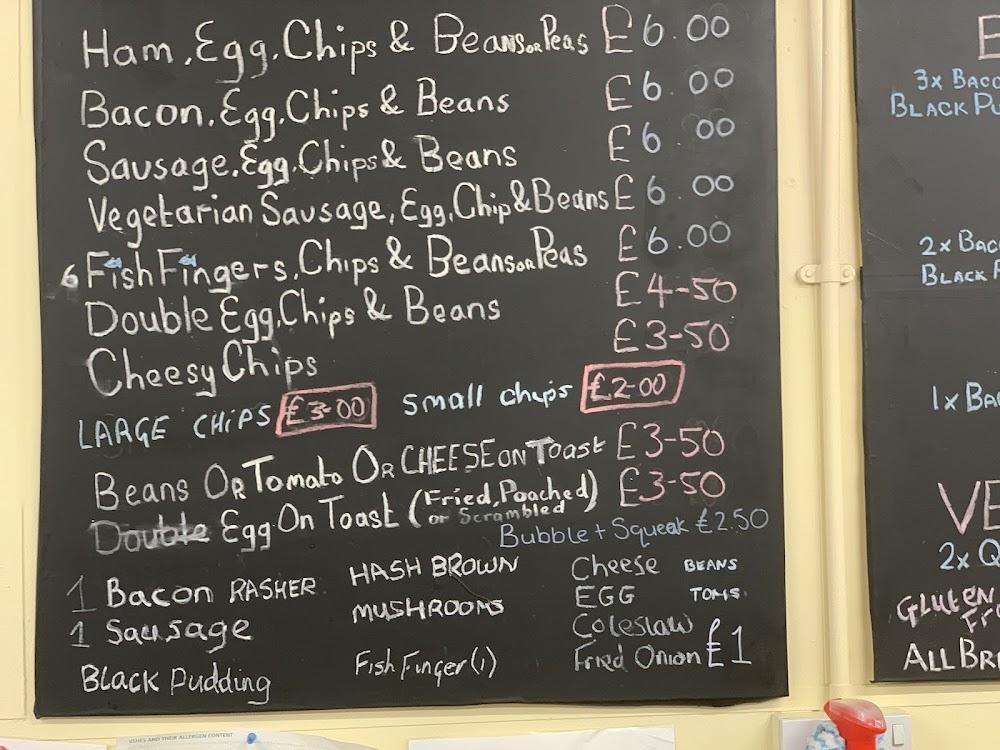 Ham, Egg, Chips & Beans or Peas £6.00
Bacon, Egg, Chips & Beans £6.00
Sausage, Egg, Chips & Beans £6.00
Vegetarian Sausage, Egg, Chip & Beans £6.00
6 Fish Fingers, Chips & Beans or Peas £6.00
Double Egg, Chips & Beans £4-50
Cheesy Chips £3-50
LARGE CHiPS £3-00 small chips £2-00
Beans OR Tomato OR CHEESE ON Toast £3-50
Double Egg On Toast (Fried, Poached) £3-50
or Scrambled
Bubble + Squeak £2.50
1 Bacon RASHER HASH BROWN Cheese BEANS
1 Sausage MUSHROOMS EGG TOMS.
Coleslaw
Black Pudding Fish Finger (1) Fried Onion £1
3x
BLACK
2x
BLACK
1x
2x
GLUTEN
ALL